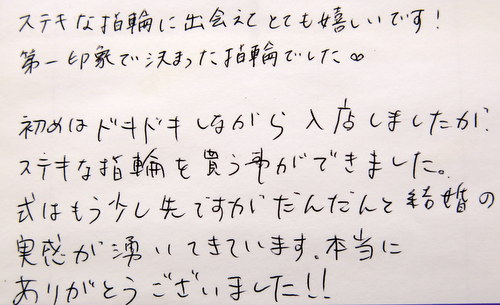 ステキな指輪に出会えてとても嬉しいです!
第一印象で決まった指輪でした∞
初めはドキドキしながら入店しましたが、
ステキな指輪を買う事ができました。
式はもう少し先ですがだんだんと結婚の
実感が湧いてきています。本当に
ありがとうございました!!